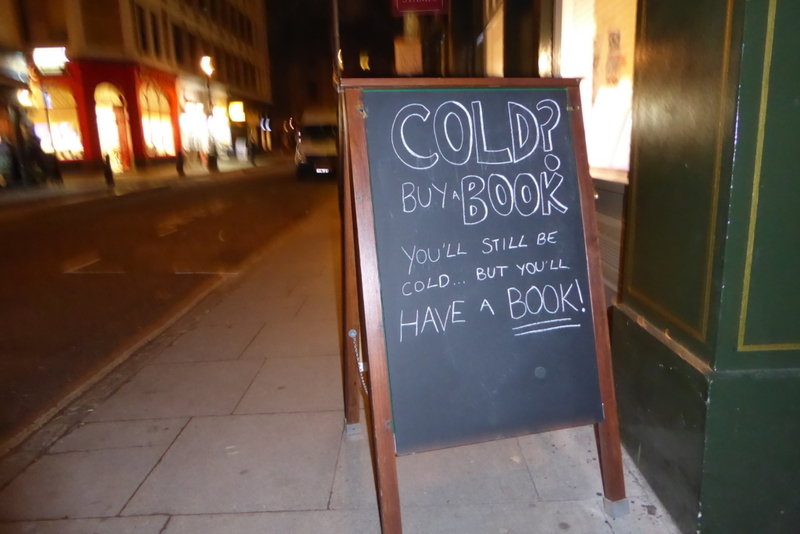 COLD?
BUY A BOOK
YOU'LL STILL BE
COLD... BUT YOU'LL
HAVE A BOOK!